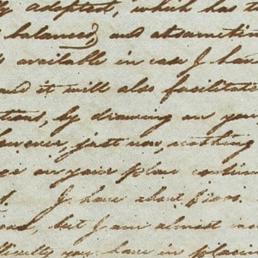 adopted, which has t
balanced, and
available in case I hav
and it will also facilitate
tions, by drawing on you
however, just now, nothing
on your plan contin
I have about
but I am almost
you have in placin